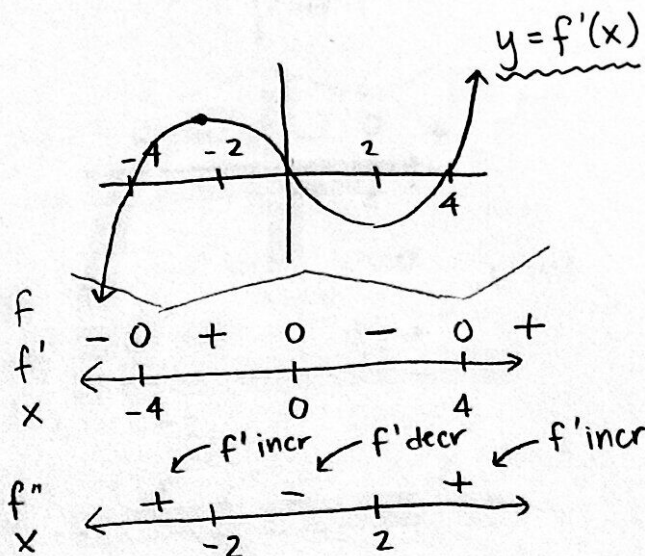 y = f'(x)
-4 -2 2
4
f
- 0 + 0 - 0 +
f'
x -4 0 4
f' incr f' decr f' incr
f" + - +
x -2 2